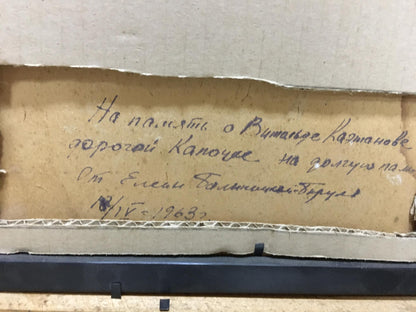 На память о Витольде Каэтановиче
дорогой Капочке на долгую память
От Елены Бялыницкой-Бируля
18/IV-1963г